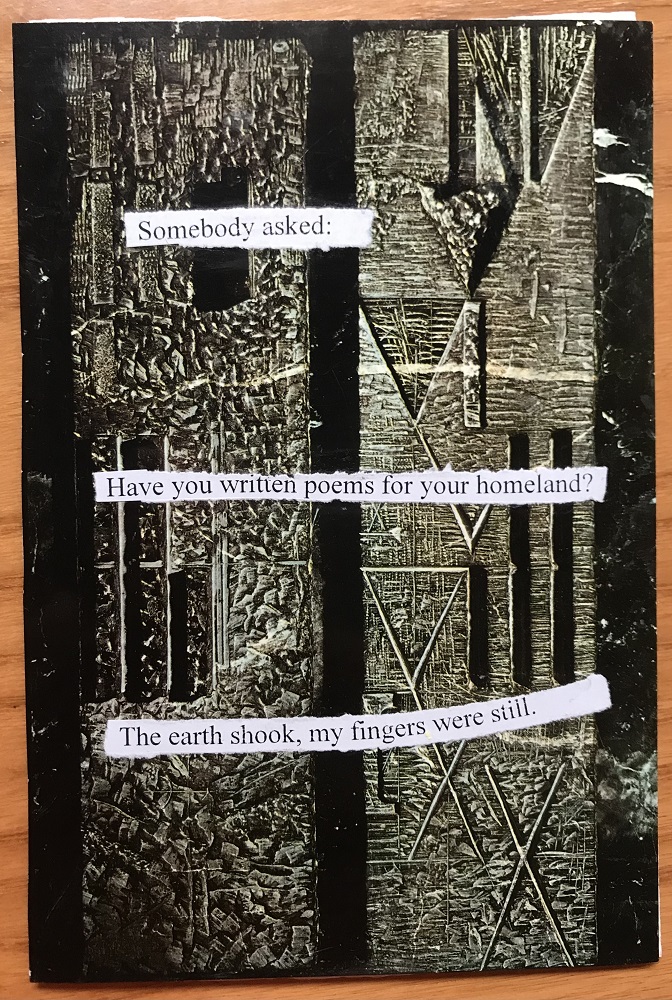 Somebody asked:
Have you written poems for your homeland?
The earth shook, my fingers were still.